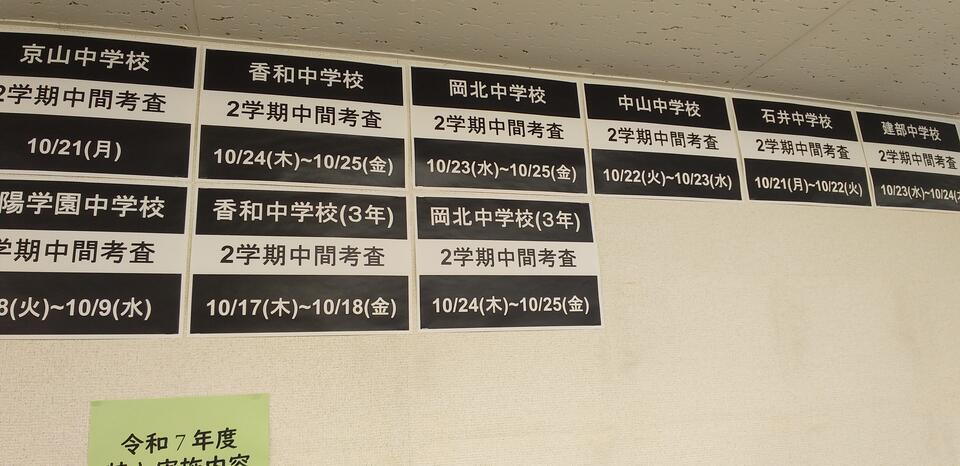 京山中学校
2学期中間考査
10/21(月)
香和中学校
2学期中間考査
10/24(木)~10/25(金)
岡北中学校
2学期中間考査
10/23(水)~10/25(金)
中山中学校
2学期中間考査
10/22(火)~10/23(水)
石井中学校
2学期中間考査
10/21(月)~10/22(火)
建部中学校
2学期中間考査
10/23(水)~10/24(
陽学園中学校
学期中間考査
8(火)~10/9(水)
香和中学校(3年)
2学期中間考査
10/17(木)~10/18(金)
岡北中学校(3年)
2学期中間考査
10/24(木)~10/25(金)
令和7年度
実施内容